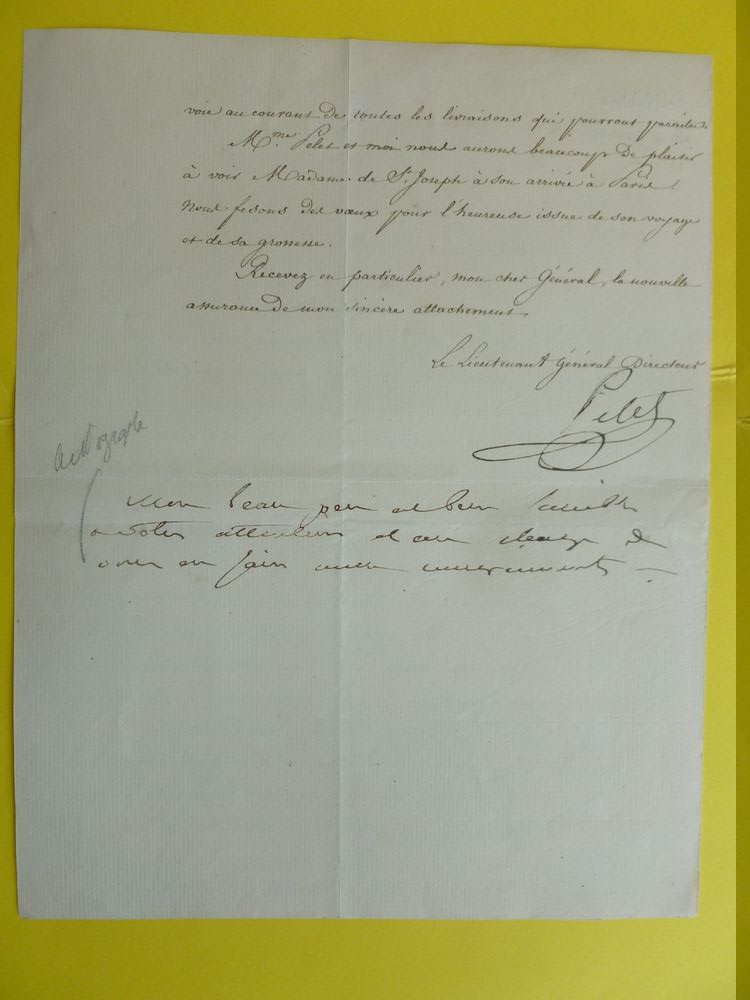 voie au courant de toutes les livraisons qui pourront paraître.
Mme. Pelet et moi nous aurons beaucoup de plaisir
à voir Madame de St. Joseph à son arrivée à Paris.
Nous fesons des vœux pour l'heureuse issue de son voyage
et de sa grossesse.
Recevez en particulier, mon cher Général, la nouvelle
assurance de mon sincère attachement.
Le Lieutenant Général Directeur
Pelet
autographe
Mon beau père est bien sensible
à votre attention et me charge de
vous en faire mes remerciements